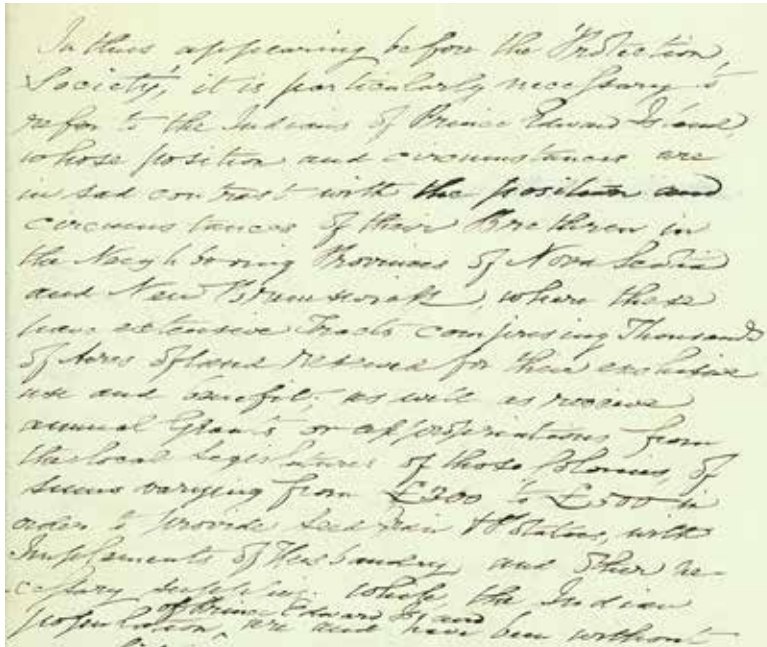 In thus appearing before the 'Protection
Society', it is particularly necessary to
refer to the Indians of Prince Edward Island,
whose position and circumstances are
in sad contrast with the position and
circumstances of their Brethren in
the Neighboring Provinces of Nova Scotia
and New Brunswick, where these
have extensive Tracts comprising Thousands
of Acres of land reserved for their exclusive
use and benefit; as well as receive
annual Grants or appropriations from
the local Legislatures of those Colonies, of
sums varying from £300 to £500 in
order to provide Seed Grain & Potatoes, with
Implements of Husbandry and other ne-
cessary supplies. While, the Indian
population, of Prince Edward Island are and have been without